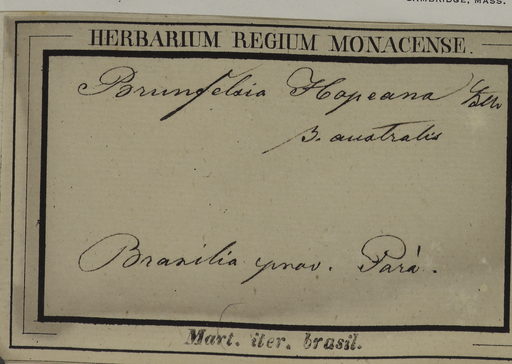 CAMBRIDGE, MASS.
HERBARIUM REGIUM MONACENSE.
Brunfelsia Hopeana Bth
β. australis
Brazilia prov. Pará.
Mart. iter. brasil.